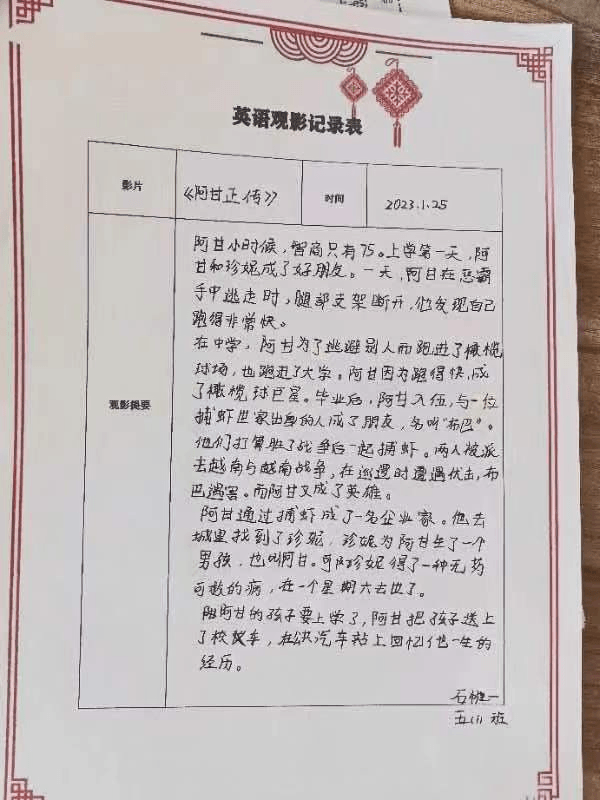 英语观影记录表
影片 《阿甘正传》 时间 2023.1.25
观影提要
阿甘小时候，智商只有75。上学第一天，阿
甘和珍妮成了好朋友。一天，阿甘在恶霸
手中逃走时，腿部支架断开，他发现自己
跑得非常快。
在中学，阿甘为了逃避别人而跑进了橄榄
球场，也跑进了大学。阿甘因为跑得快，成
了橄榄球巨星。毕业后，阿甘入伍，与一位
捕虾世家出身的人成了朋友，名叫“布巴”。
他们打算胜了战争后一起捕虾。两人被派
去越南与越南战争，在巡逻时遭遇伏击，布
巴遇害。而阿甘又成了英雄。
阿甘通过捕虾成了一名企业家。他去
城里找到了珍妮，珍妮为阿甘生了一个
男孩，也叫阿甘。可珍妮得了一种无药
可救的病，在一个星期六去世了。
阿甘的孩子要上学了，阿甘把孩子送上
了校车，在公共汽车站上回忆他一生的
经历。
石一
五(1)班